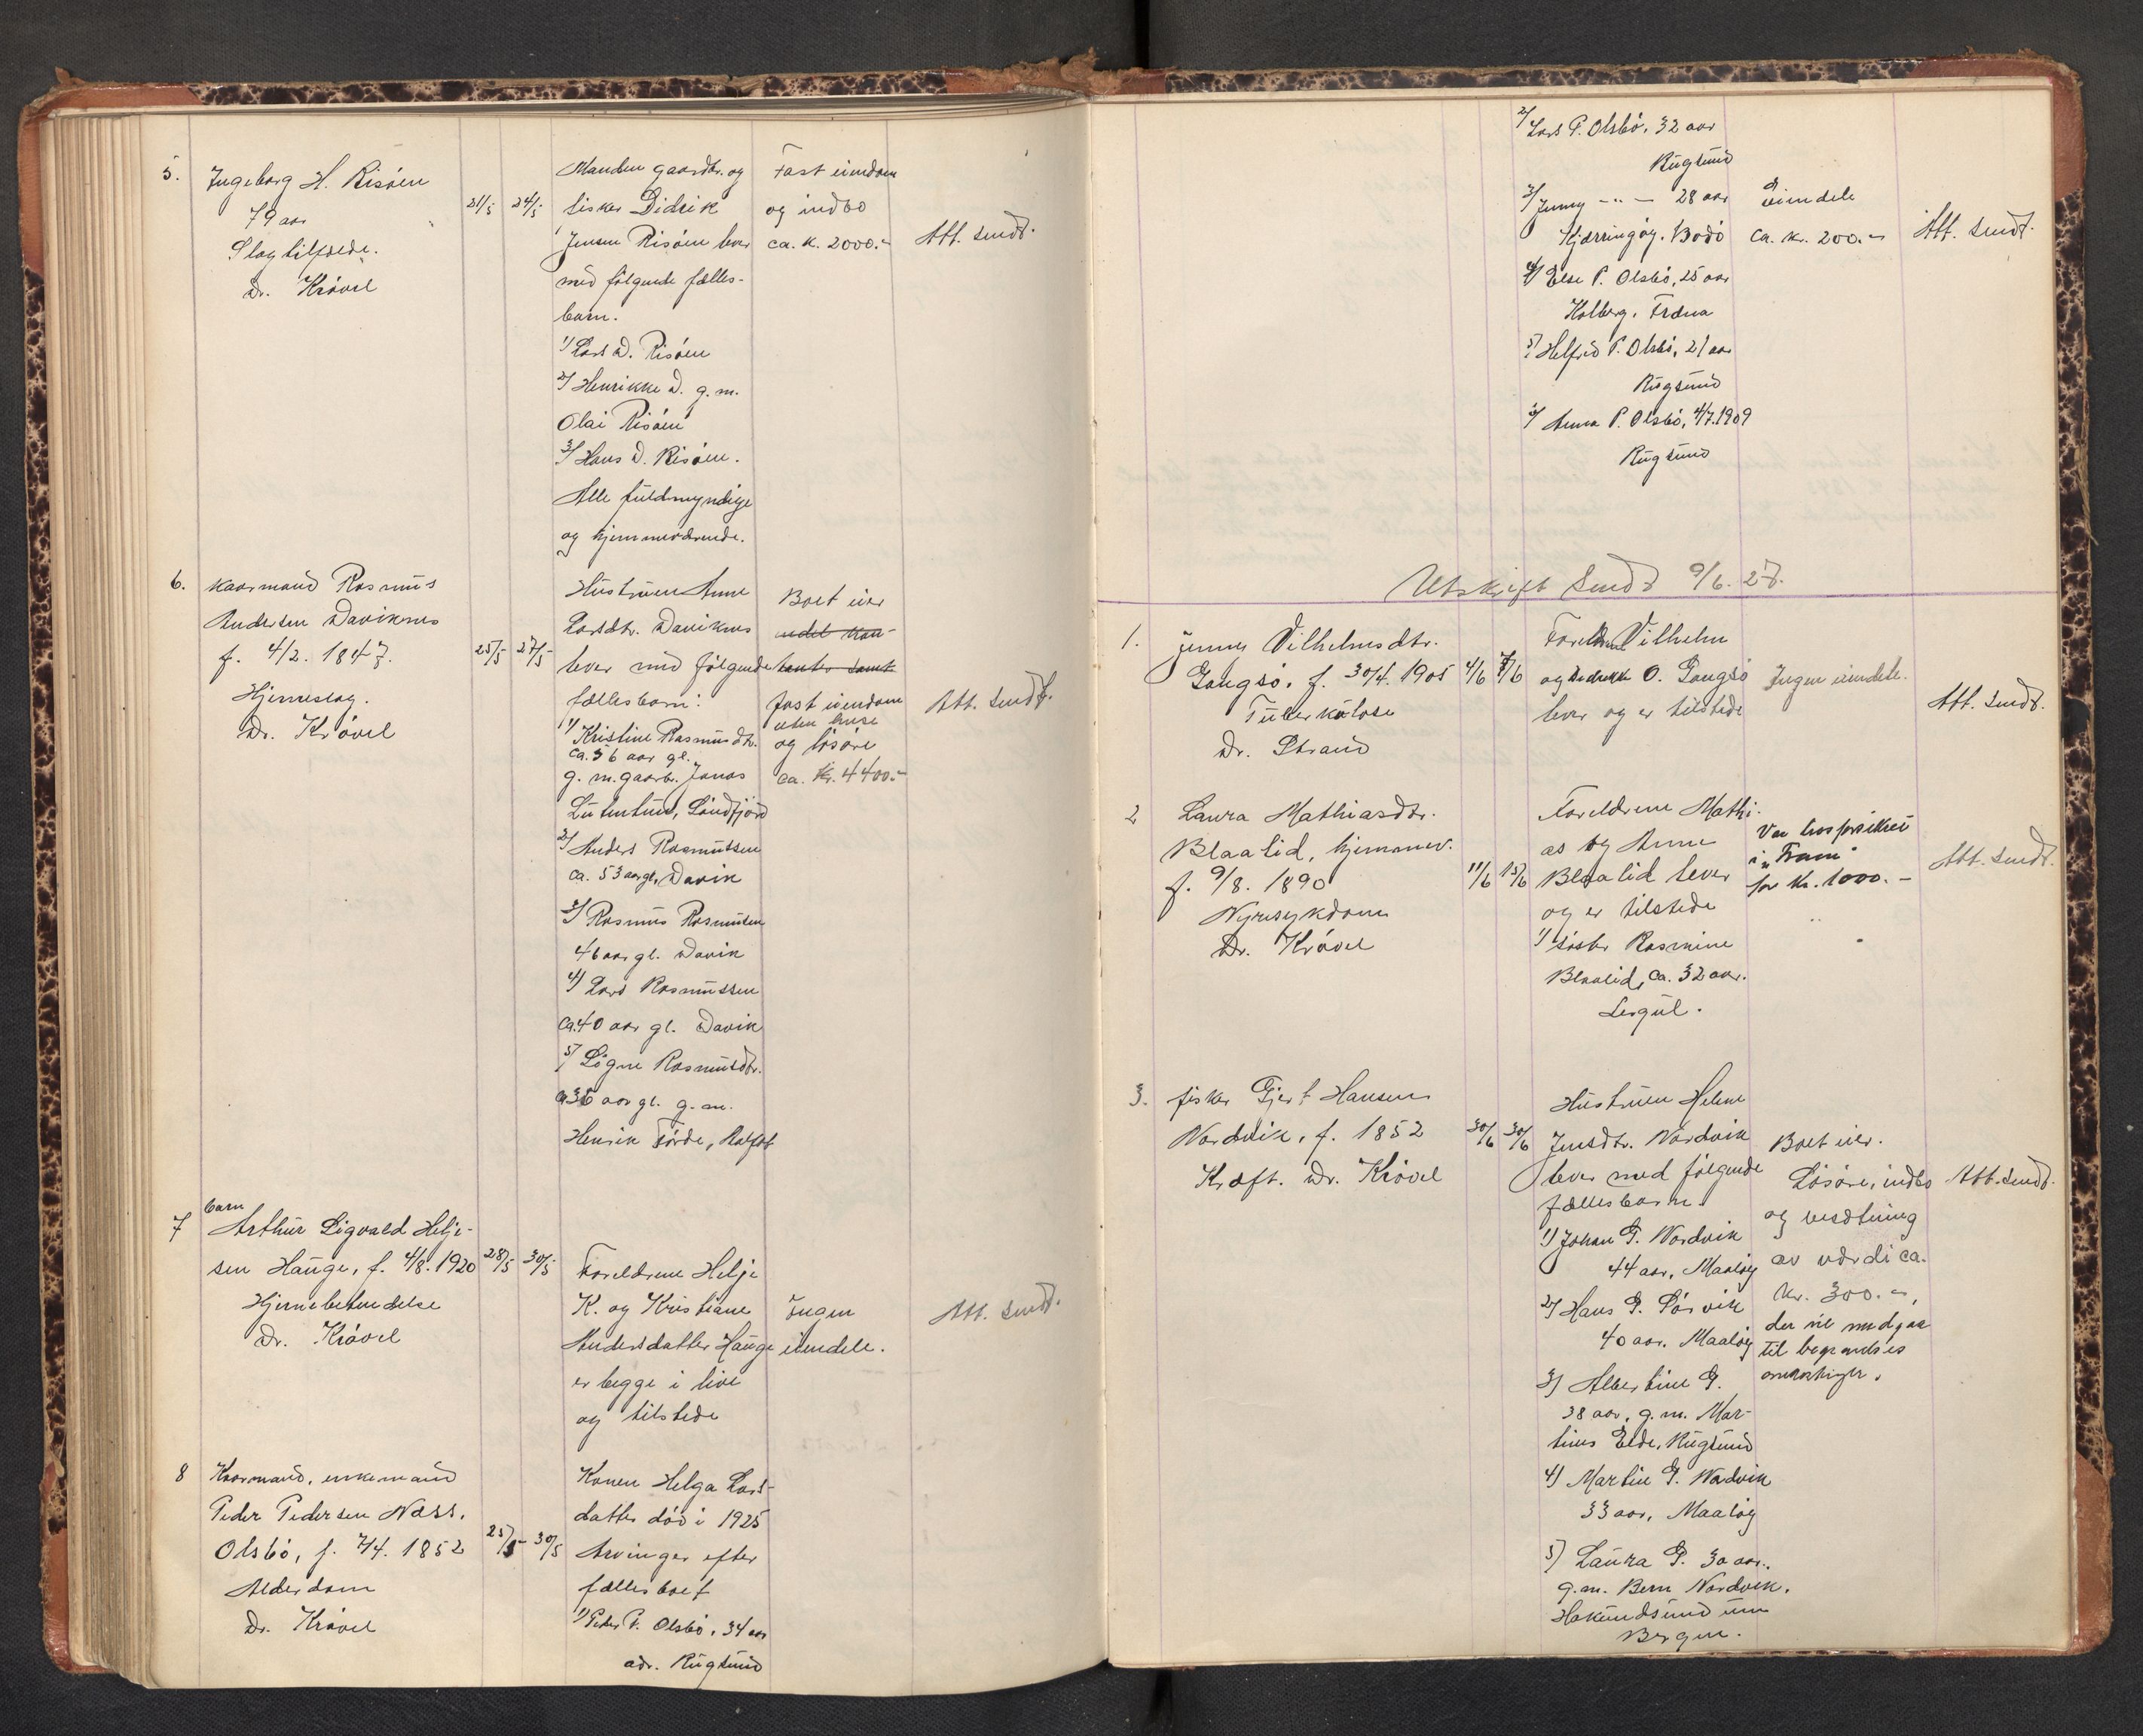 5.
Ingeborg H. Risöen
79 aar
Slagtilfælde.
Dr. Krövel
21/5
24/5
Manden gaardbr. og
fisker Didrik
Jensen Risöen lever
med fölgende fælles-
barn.
1) Lars D. Risöen
2) Henrikke D. g. m.
Olai Risöen
3) Hans D. Risöen.
Alle fuldmyndige
og hjemmeværende.
Fast eiendom
og indbo
ca. k. 2000.-
Att. sendt.
6.
Kaarmand Rasmus
Andersen Daviknes
f. 4/2. 1847.
Hjerneslag.
Dr. Krövel
25/5
27/5
Hustruen Anne
Larsdtr. Daviknes
lever med fölgende
fællesbarn:
1) Kristine Rasmusdtr.
ca. 56 aar gl.
g. m. gaarbr. Jonas
Söndfjord
2) Anders Rasmussen
ca. 53 aar gl. Davik
3) Rasmus Rasmussen
46 aar gl. Davik
4) Lars Rasmussen
ca. 40 aar gl. Davik
5) Signe Rasmusdtr.
ca 36 aar gl. g. m.
Henrik Förde, Kalfot
Boet eier
fast eiendom
uten huse
og lösöre
ca. kr. 4400.-
Att. sendt.
7
barn
Arthur Sigvald Helje-
sen Hauge, f. 4/8. 1920
Hjernebetendelse
Dr. Krövel
28/5
30/5
Foreldrene Helje
K. og Kristiane
Andersdatter Hauge
er begge i live
og tilstede
Ingen
eiendele.
Att. sendt.
8
Kaarmand, enkemand
Peder Pedersen Nass.
Olsbö, f. 7/4. 1852
Alderdom
Dr. Krövel
25/5
30/5
Konen Helga Lars-
datter död i 1925
Arvinger efter
fællesboet
1) Peder P. Olsbö, 34 aar
adr. Rugsund
2) Lars P. Olsbö, 32 aar
Rugsund
3) Jenny -"- 28 aar
Kjærringöy. Bodö
4) Else P. Olsbö, 25 aar
Holberg, Fræna
5) Helfrid P. Olsbö, 21 aar
Rugsund
6) Anna P. Olsbö, 4/7. 1909
Rugsund
eiendele
ca. kr. 200.-
Att. sendt.
Utskrift sendt 9/6. 27.
1.
Jenny Vilhelmsdtr.
Gangsö, f. 30/4. 1905
Tuberkulose
Dr. Strand
4/6
7/6
Foreldrene Vilhelm
og O. Gangsö
lever og er tilstede
Ingen eiendele.
Att. sendt.
2
Laura Mathiasdtr.
Blaalid, hjemmev.
f. 9/8. 1890
Nyresykdom
Dr. Krövel
11/6
15/6
Foreldrene Mathi-
as og Anne
Blaalid lever
og er tilstede
1) Söster Rasmine
Blaalid, ca. 32 aar.
Leirgul.
Var livsforsikret
i "Fram"
for kr. 1000.-
Att. sendt.
3.
fisker Gjert Hansen
Nordvik, f. 1852
Kræft. Dr. Krövel
30/6
30/6
Hustruen Helene
Jensdtr. Nordvik
lever med fölgende
fællesbarn
1) Johan G. Nordvik
44 aar, Maalöy
2) Hans G. Sörvik
40 aar. Maalöy
3) Albertine G.
38 aar, g. m. Mar-
tinus Eide, Rugsund
4) Martin G. Nordvik
33 aar, Maalöy
5) Laura G. 30 aar.
g. m. Bern Nordvik,
Hakundsund
Bergen.
Boet eier.
Lösöre, indbo
og besætning
av værdi ca.
kr. 300.-,
der vil medgaa
til begravelses
omkostninger.
Att. sendt.